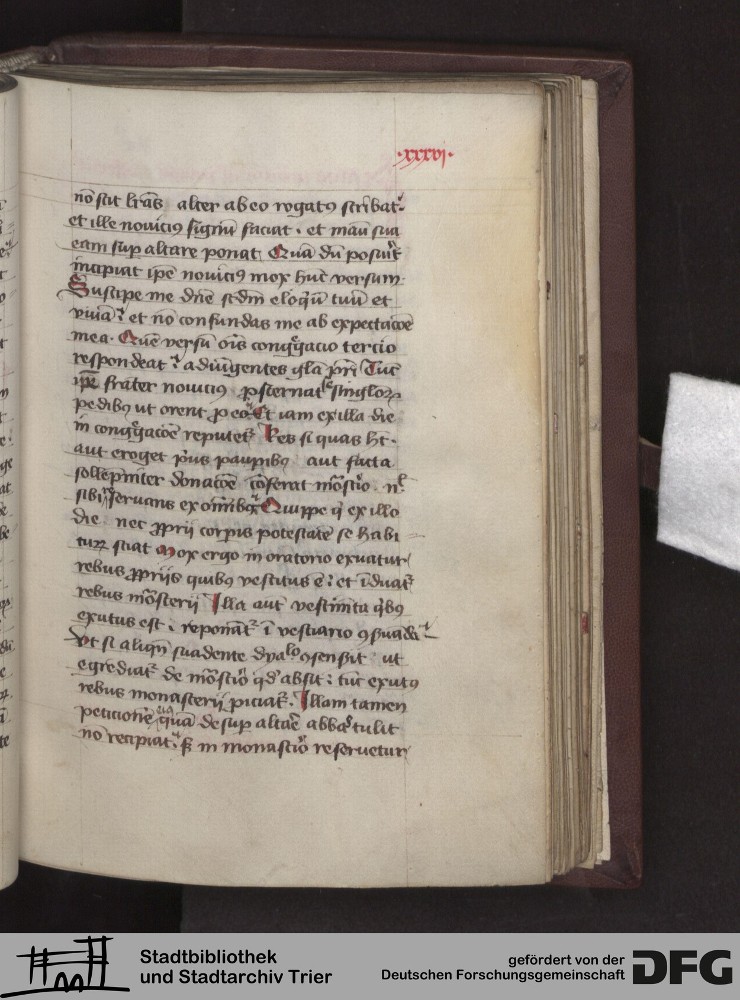 ·xxxvi·
nō scit lr̄as alter ab eo rogatꝰ scribat
et ille noviciꝰ signū faciat · et manu sua
eam suꝑ altare ponat Quā dū posuit̉
incipiat ip̄e noviciꝰ mox hūc versum
Suscipe me dn̄e scd̄m eloq̄ū tuū et
viuā ⁊ et nō confundas me ab expectacōe
mea · Quē versū oīs congͣgacio tercio
respondeat ⁊ adiūgentes gl̄a pr̄i Tūc
ip̄e frater noviciꝰ ꝓsternat̉ singloꝝ
pedibꝰ ut orent ꝓ eo Et iam ex illa die
in congͣgacōe reputet̉ Res si quas hꝫ ·
aut eroget p̉us pauꝑibꝰ aut facta
sollēpniter donacōe cōferat mōstio · nl
sibi reseruans ex om̄ibꝰ Quippe qͥ ex illo
die nec ꝓprij corpis potestatē se habi
turꝝ sciat Mox ergo in oratorio exuatur
rebus ꝓprijs quibꝰ vestitus ē ⁊ et īduat̉
rebus mōsterij Illa aut̄ vestim̄ta qͥbꝰ
exutus est · reponāt̉ ī vestiario ꝯsuāda
Vt si aliqn̄ suadente dyalo ꝯsenẜit ut
egrediat̉ de mōstio qd̓ absit ⁊ tūc exutꝰ
rebus monasterij ꝓiciat̉ · Illam tamen
peticionē eiꝰ quā desuꝑ altāe abbas tulit
nō recipiat · sꝫ in monastio reseruetur
Stadtbibliothek
und Stadtarchiv Trier
gefördert von der
Deutschen Forschungsgemeinschaft
DFG